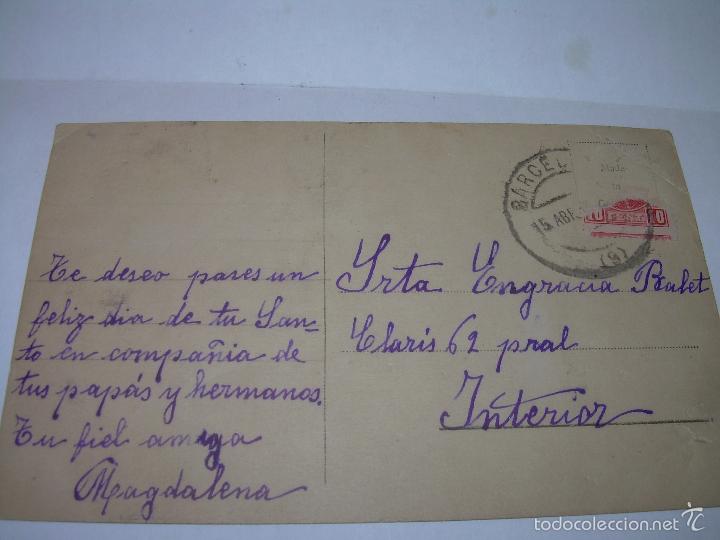 Te deseo pases un
feliz dia de tu San=
to en compañia de
tus papás y hermanos.
Tu fiel amiga
Magdalena
BARCEL
15 ABR
(9)
Made
in
10
Srta Engracia Balet
Claris 62 pral
Interior
todocoleccion.net